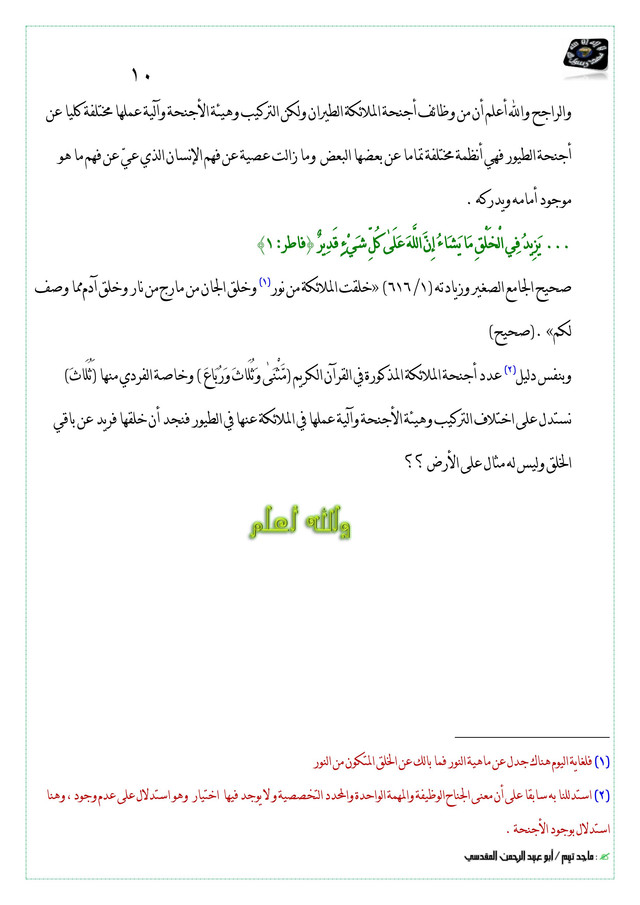 ١٠
والراجح والله أعلم أن من وظائف أجنحة الملائكة الطيران ولكن التركيب وهيئة الأجنحة وآلية عملها مختلفة كليا عن
أجنحة الطيور فهي أنظمة مختلفة تماما عن بعضها البعض وما زالت عصية عن فهم الإنسان الذي عيّ عن فهم ما هو
موجود أمامه ويدركه .
... يَزِيدُ فِي الْخَلْقِ مَا يَشَاءُ إِنَّ اللَّهَ عَلَىٰ كُلِّ شَيْءٍ قَدِيرٌ ﴿فاطر: ١﴾
صحيح الجامع الصغير وزيادته (١/ ٦١٦) «خلقت الملائكة من نور(١) وخلق الجان من مارج من نار وخلق آدم مما وصف
لكم» . (صحيح)
وبنفس دليل(٢) عدد أجنحة الملائكة المذكورة في القرآن الكريم (مَثْنَىٰ وَثُلَاثَ وَرُبَاعَ ) وخاصة الفردي منها (ثُلَاثَ)
نستدل على اختلاف التركيب وهيئة الأجنحة وآلية عملها في الملائكة عنها في الطيور فنجد أن خلقها فريد عن باقي
الخلق وليس له مثال على الأرض ؟؟
والله أعلم
(١) فلغاية اليوم هناك جدل عن ماهية النور فما بالك عن الخلق المتكون من النور
(٢) استدللنا به سابقا على أن معنى الجناح الوظيفة والمهمة الواحدة والمحدد التخصصية ولا يوجد فيها اختيار وهو استدلال على عدم وجود ، وهنا
استدلال بوجود الأجنحة .
: ماجد تيم / أبو عبد الرحمن المقدسي